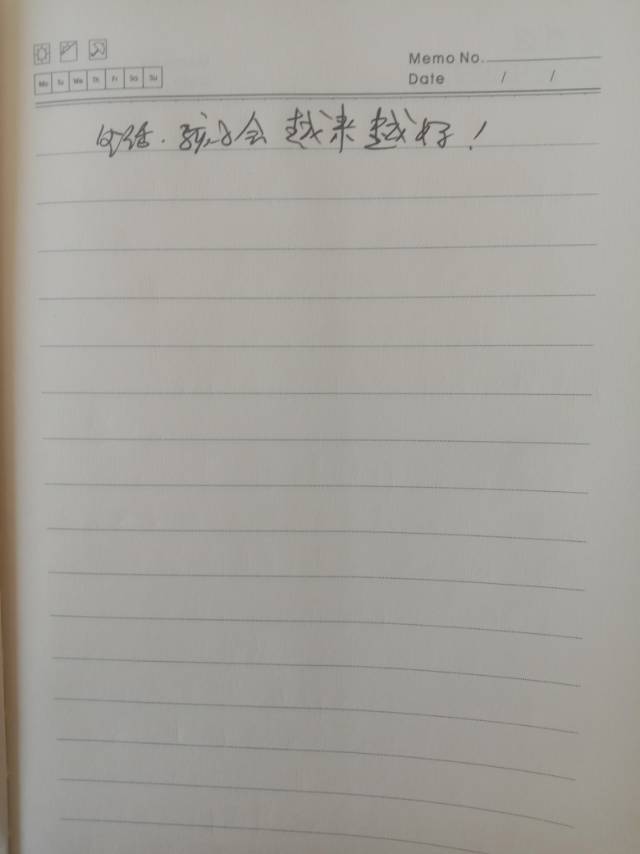 Memo No.
Mo Tu We Th Fr Sa Su
Date / /
孩子会越来越好！